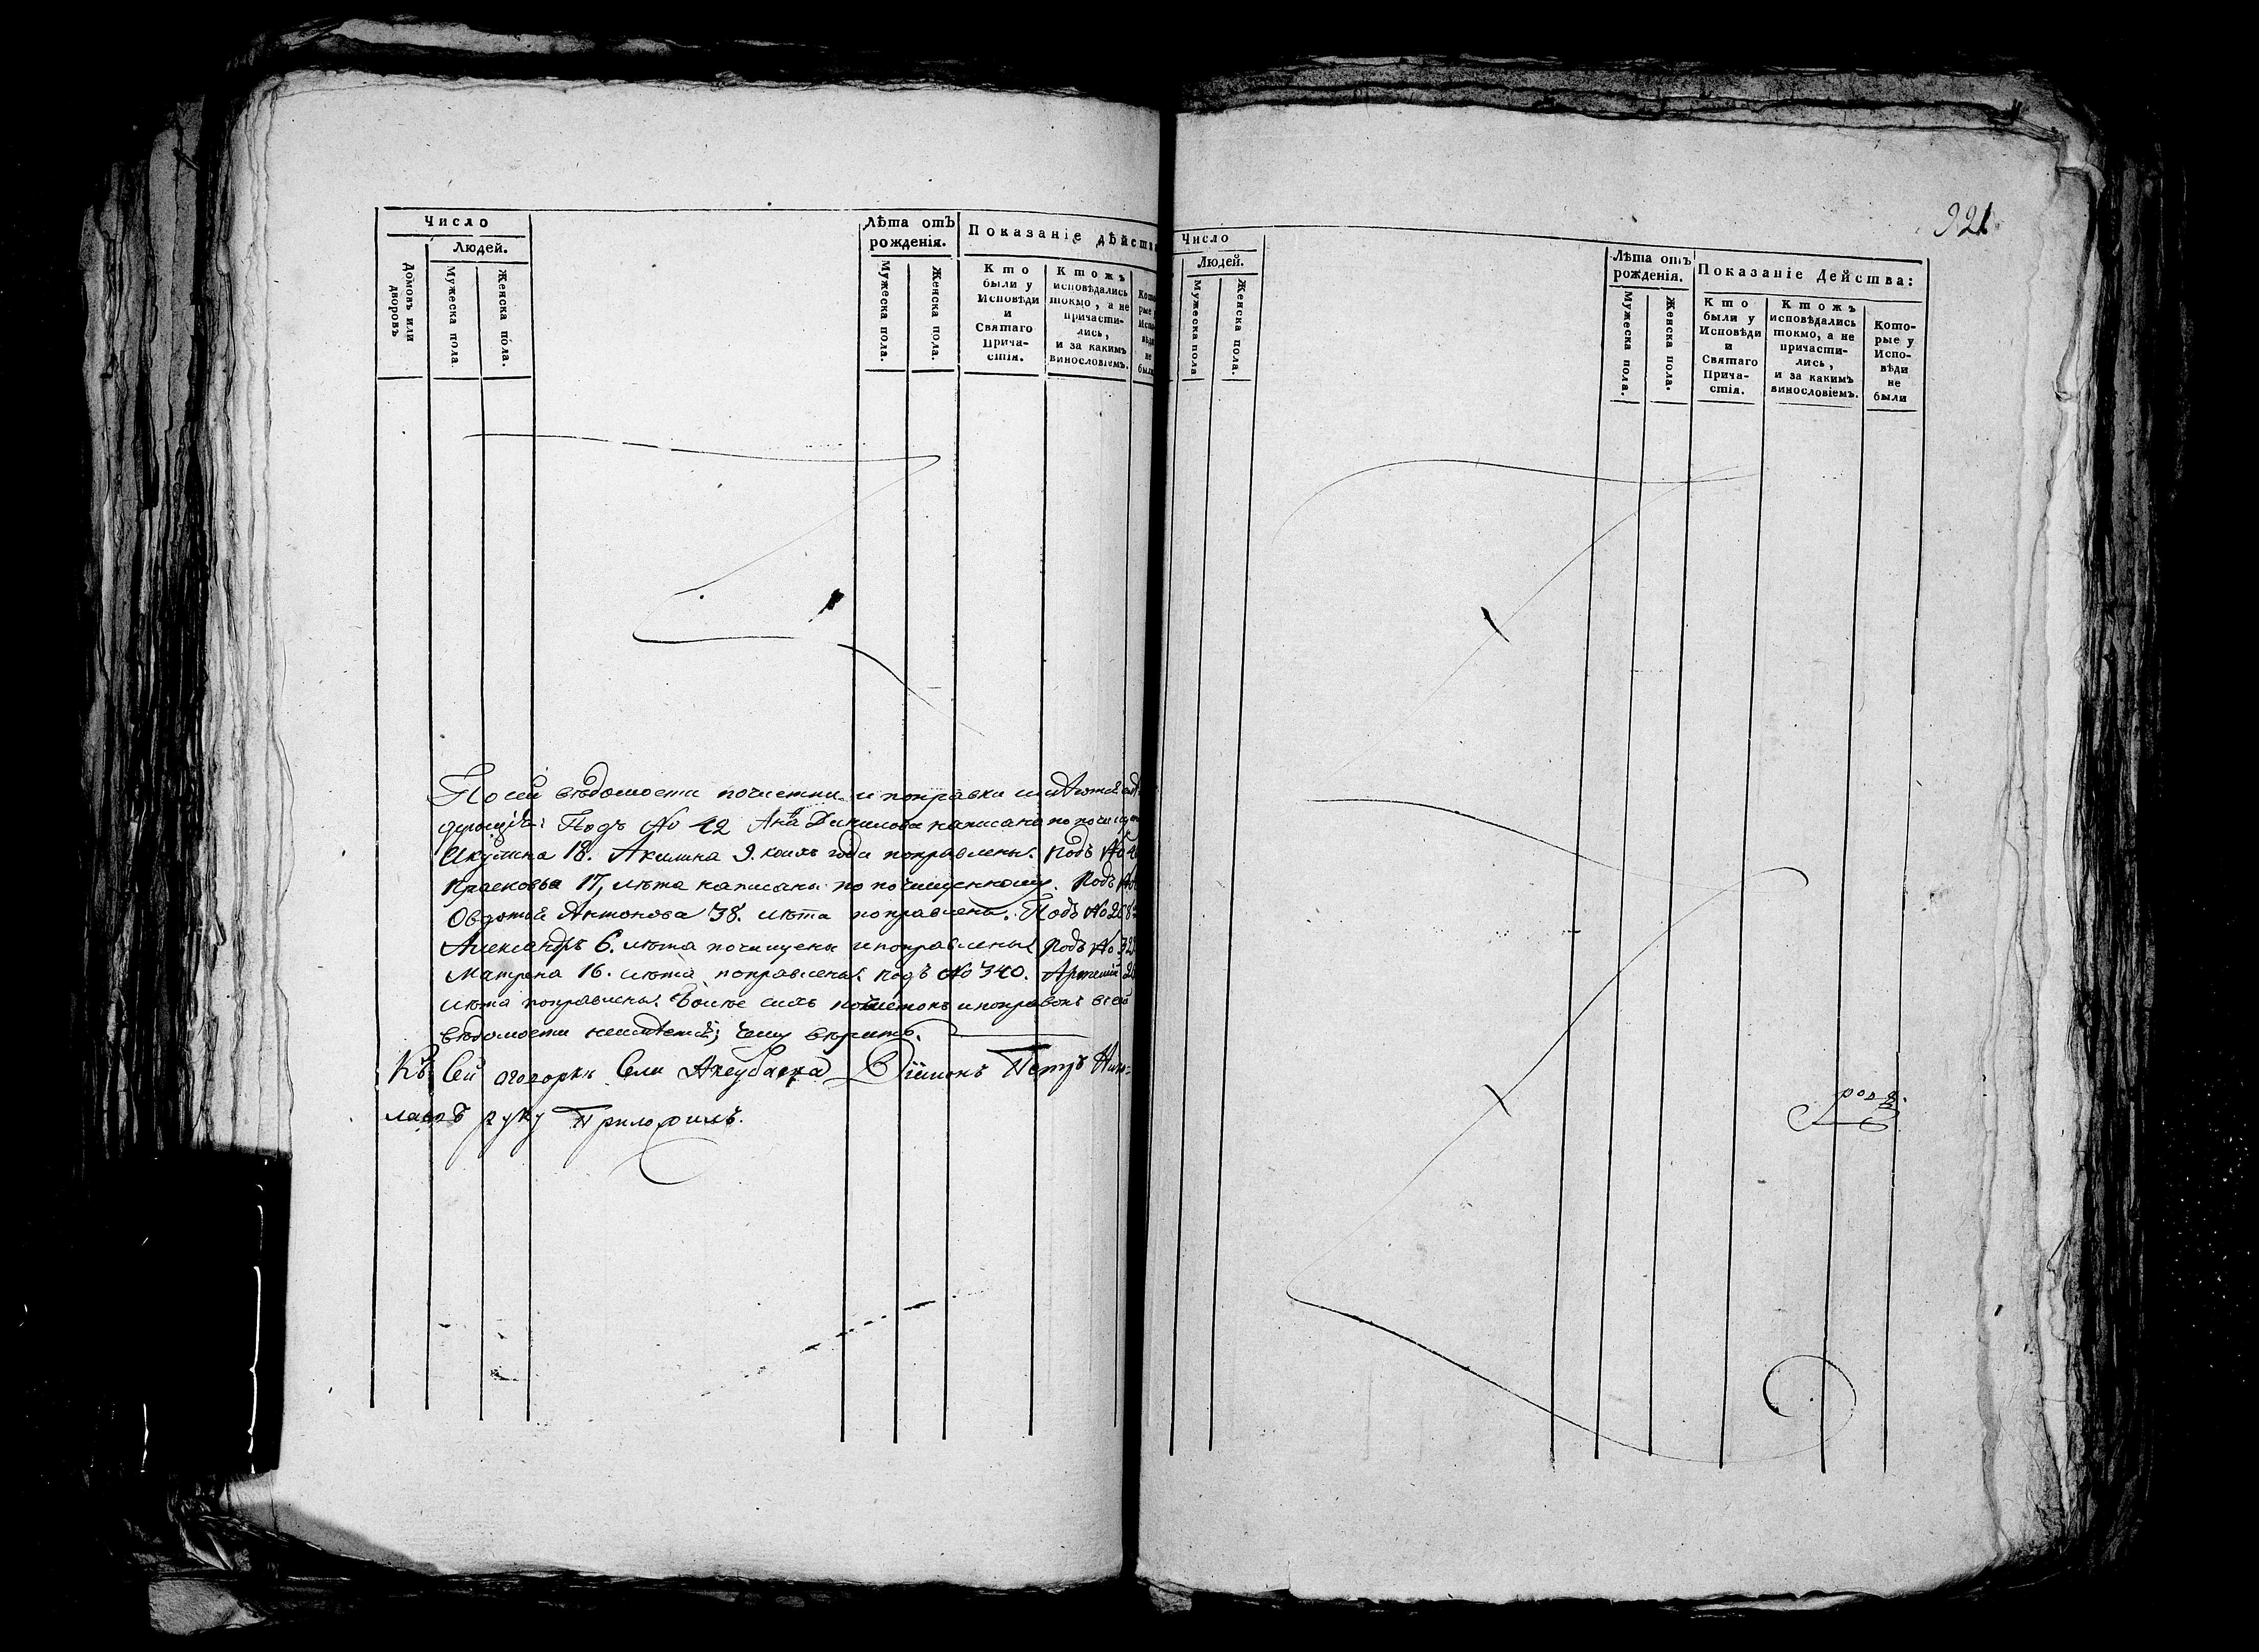 Число
Людей.
Домовъ или дворовъ
Мужеска пола.
Женска пола.
Лѣта отъ рожденія.
Мужеска пола.
Женска пола.
Показаніе дѣйства
Кто были у Исповѣди и Святаго Причастія.
Ктожъ исповѣдались токмо, а не причастились, и за какимъ винословіемъ.
По сей вѣдомости почистки и поправки имѣются
Подъ No 42 Анна Данилова написана по
Акулина 18. Акилина 9. коихъ года поправлены. Подъ No
Прасковья 17, лѣта написаны по почищенному. Подъ No
Овдотья Антонова 38. лѣта поправлены. Подъ No 268
Александръ 6. лѣта почищены и поправлены Подъ No 32
Матрена 16. лѣта поправлены. подъ No 340. Артемій 2
лѣта поправлены. Болѣе сихъ почистокъ и поправокъ в сей
вѣдомости неимѣется; чему вѣрить.
Къ Сей оговорке Села Аксубаева Діяконъ Петръ Нико=
лаевъ руку Приложилъ.
921
Число
Людей.
Мужеска пола
Женска пола.
Лѣта отъ рожденія.
Мужеска пола.
Женска пола.
Показаніе Действа:
Кто были у Исповѣди и Святаго Причастія.
Ктожъ исповѣдались токмо, а не причастились, и за какимъ винословіемъ.
Которые у Исповѣди не были